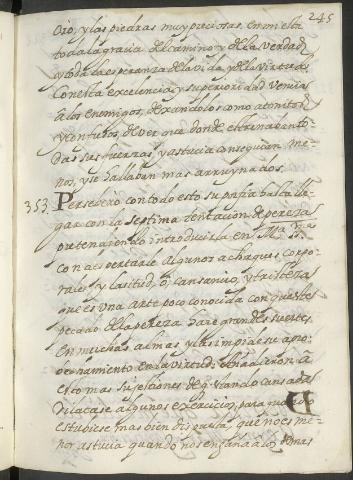 245
Oro, y las piedras muy preciosas, en mi està
toda la gracia del camino y de la verdad
y toda la esperanza de la vida y de la virtud.
Con esta excelencia y superioridad vencia
à los enemigos, dexandolos como atonitos
y confusos, de ver que donde estrenaban to-
das sus fuerzas y astucia conseguian me-
nos, y se hallaban mas arruynados.
353. Persebero con todo esto su porfia hasta lle-
gar con la septima tentacion de pereza
pretendiendo introducirla en Mª Sª
con despertarle algunos achaques corpo-
rales y lasitud, o cansancio, y tristeza
que es una arte poco conocida con que este
pecado de la pereza hace grandes suertes
en muchas almas y las impide su apro-
bechamiento en la virtud: añadieron à
esto mas sugestiones de que estando cansada
dilatase algunos exercicios, para quando
estubiese mas bien dispuesta, que no es me-
nor astucia quando nos engaña à los demas